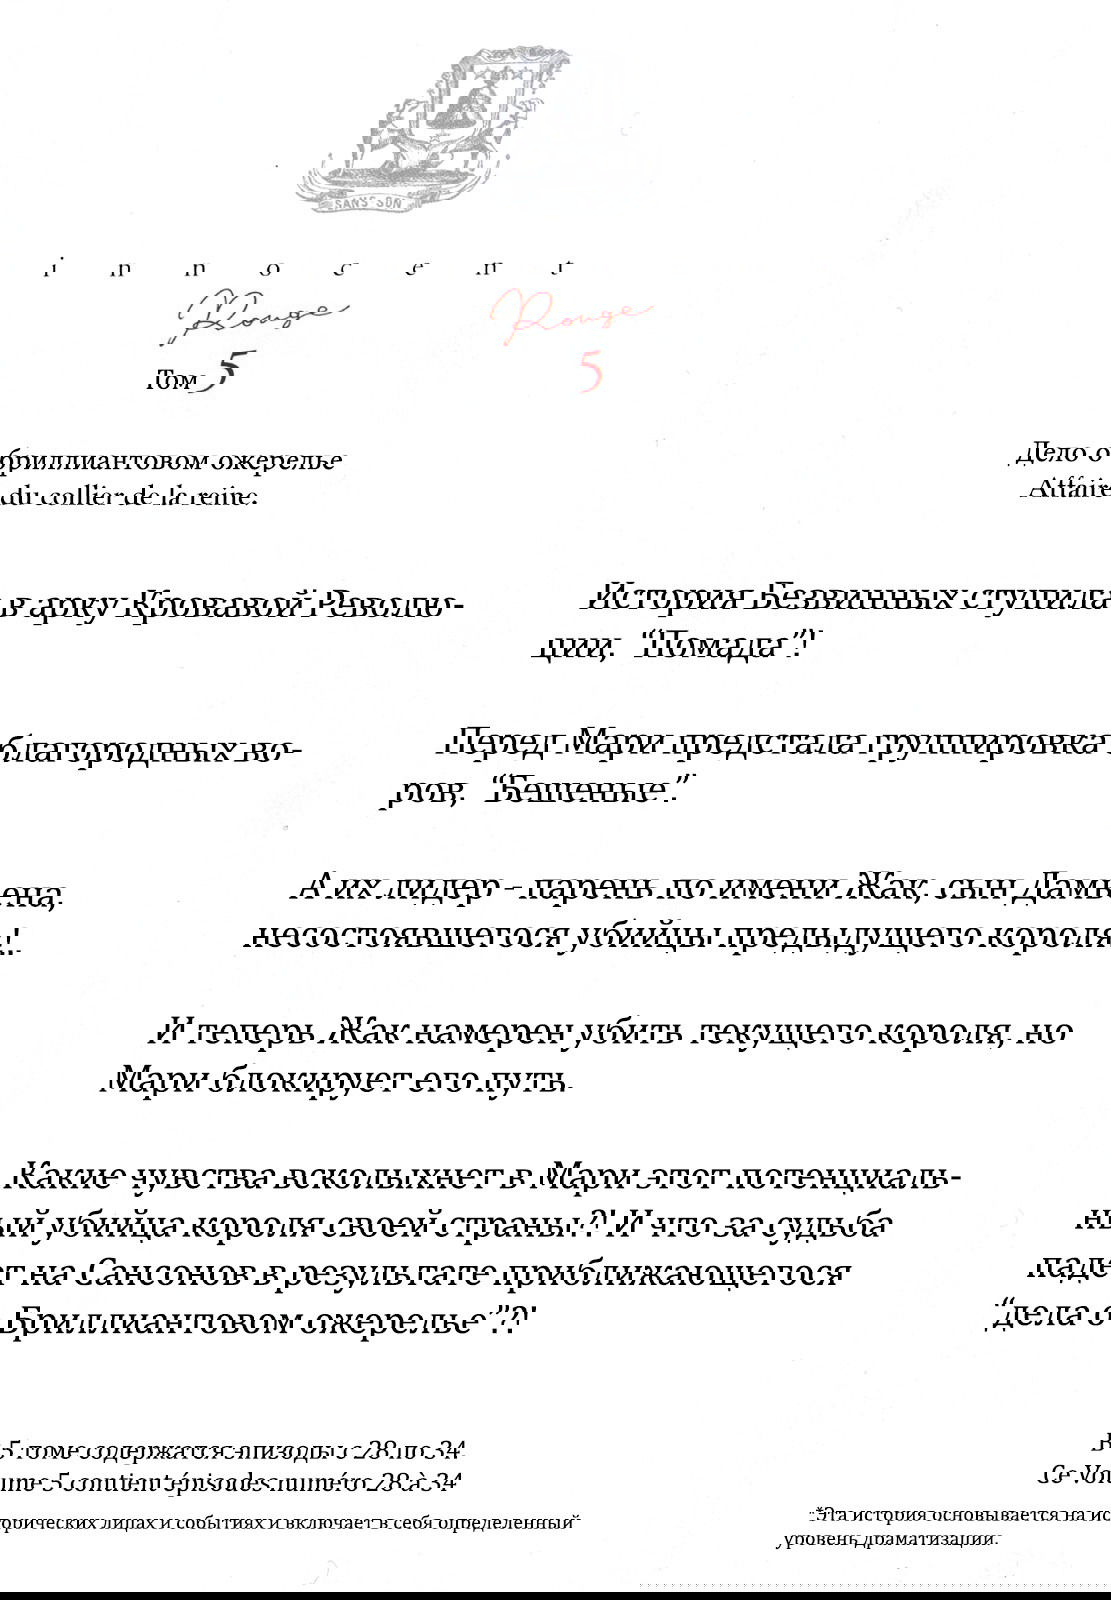 SANS SON
innocent
Rouge Rouge
Том 5
5
Дело о бриллиантовом ожерелье
Affaire du collier de la reine.
История Безвинных ступила в арку Кровавой Револю-
ции, “Помада”!
Перед Мари предстала группировка благородных во-
ров, “Бешеные”.
А их лидер - парень по имени Жак, сын Дамьена,
несостоявшегося убийцы предыдущего короля!.
И теперь Жак намерен убить текущего короля, но
Мари блокирует его путь.
Какие чувства всколыхнет в Мари этот потенциаль-
ный убийца короля своей страны?! И что за судьба
падет на Сансонов в результате приближающегося
“дела о Бриллиантовом ожерелье”?!
В 5 томе содержатся эпизоды с 28 по 34.
Ce Volume 5 contient épisodes numéro 28 à 34
*Эта история основывается на исторических лицах и событиях и включает в себя определенный
уровень драматизации.